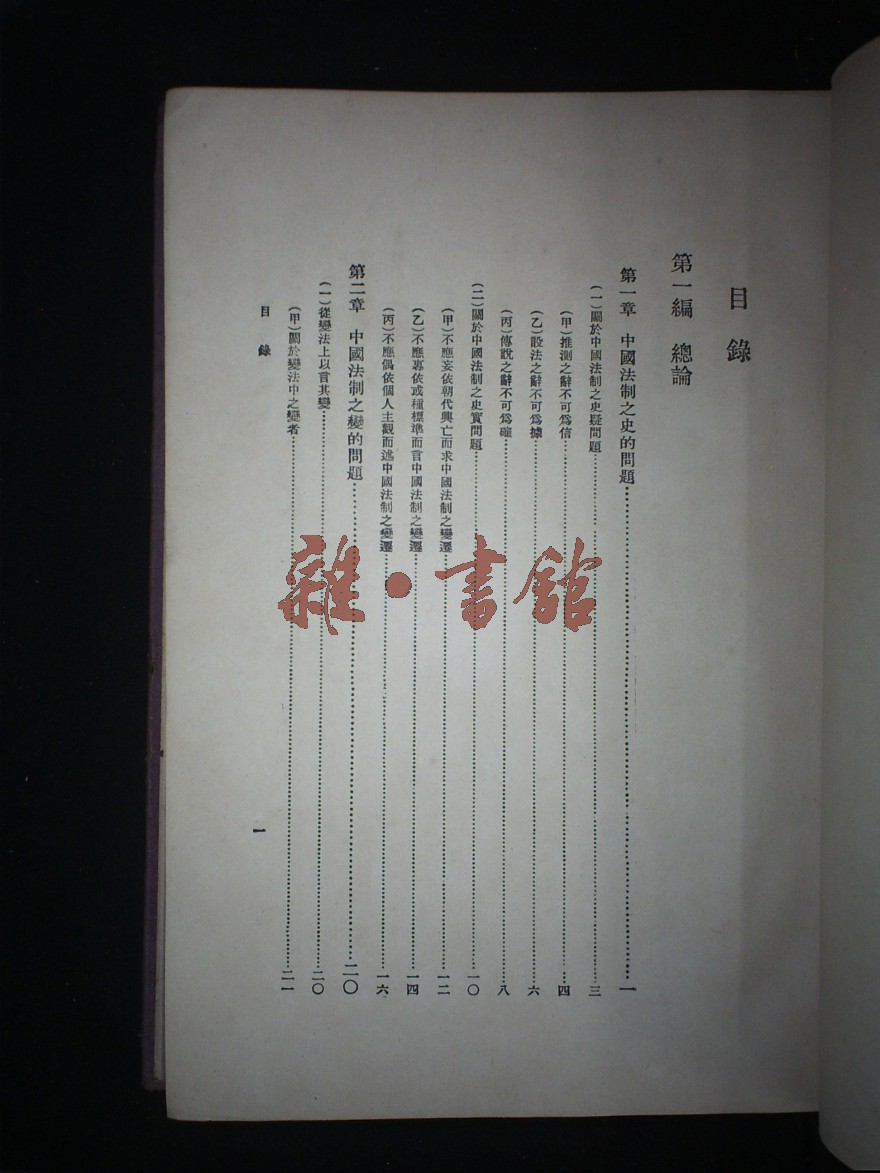 目錄
第一編　總論
第一章　中國法制之史的問題……一
(一)關於中國法制之史疑問題……三
(甲)推測之辭不可爲信……四
(乙)設法之辭不可爲據……六
(丙)傳說之辭不可爲確……八
(二)關於中國法制之史實問題……一〇
(甲)不應妄依朝代興亡而求中國法制之變遷……一二
(乙)不應專依或種標準而言中國法制之變遷……一四
(丙)不應偶依個人主觀而述中國法制之變遷……一六
第二章　中國法制之變的問題……二〇
(一)從變法上以言其變……二〇
(甲)關於變法中之變者……二一
目錄
一
雜·書館